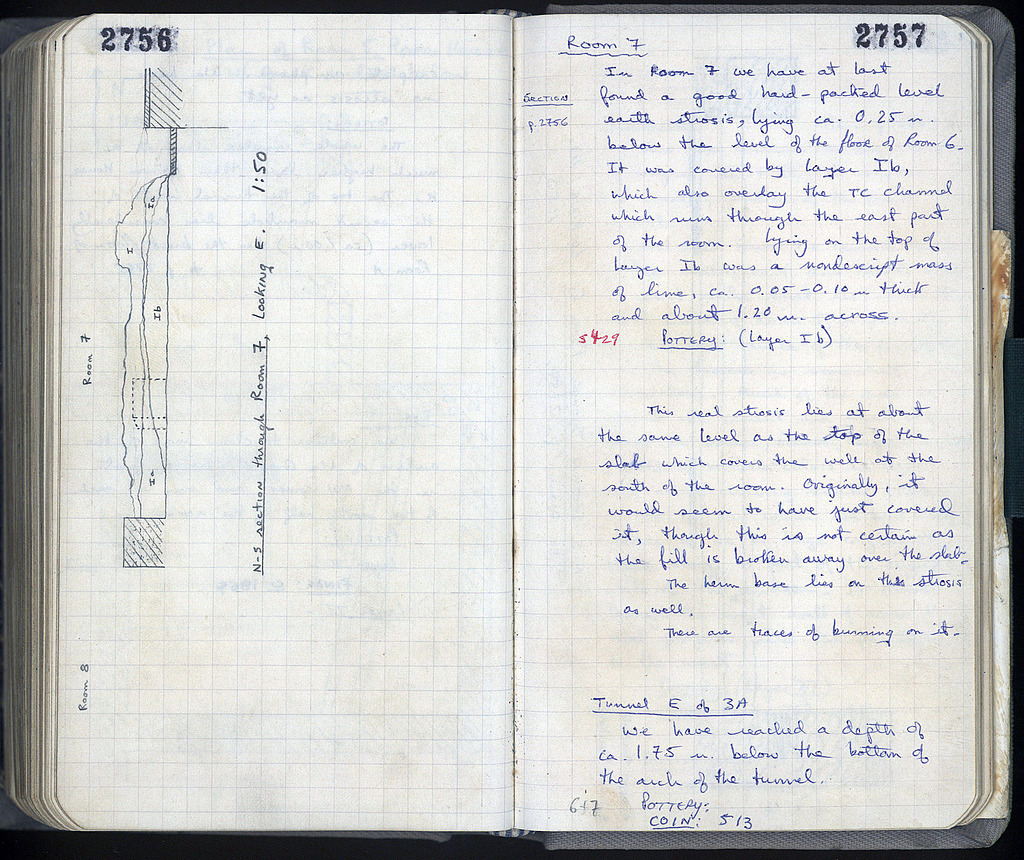 2756
I
Ia
Ib
Ia
Room 7
Room 8
N-S section through Room 7, Looking E. 1:50
2757
Room 7
In Room 7 we have at last
found a good hard-packed level
earth strosis, lying ca. 0.25 m.
below the level of the floor of Room 6.
It was covered by Layer Ib,
which also overlay the TC channel
which runs through the east part
of the room. Lying on the top of
Layer Ib was a nondescript mass
of lime, ca. 0.05-0.10 m thick
and about 1.20 m. across.
SECTION
p. 2756
5429 POTTERY: (Layer Ib)
This real strosis lies at about
the same level as the top of the
slab which covers the well at the
south of the room. Originally, it
would seem to have just covered
it, though this is not certain as
the fill is broken away over the slab.
The herm base lies on this strosis
as well.
There are traces of burning on it.
Tunnel E of 3A
We have reached a depth of
ca. 1.75 m. below the bottom of
the arch of the tunnel.
POTTERY:
COIN: 513